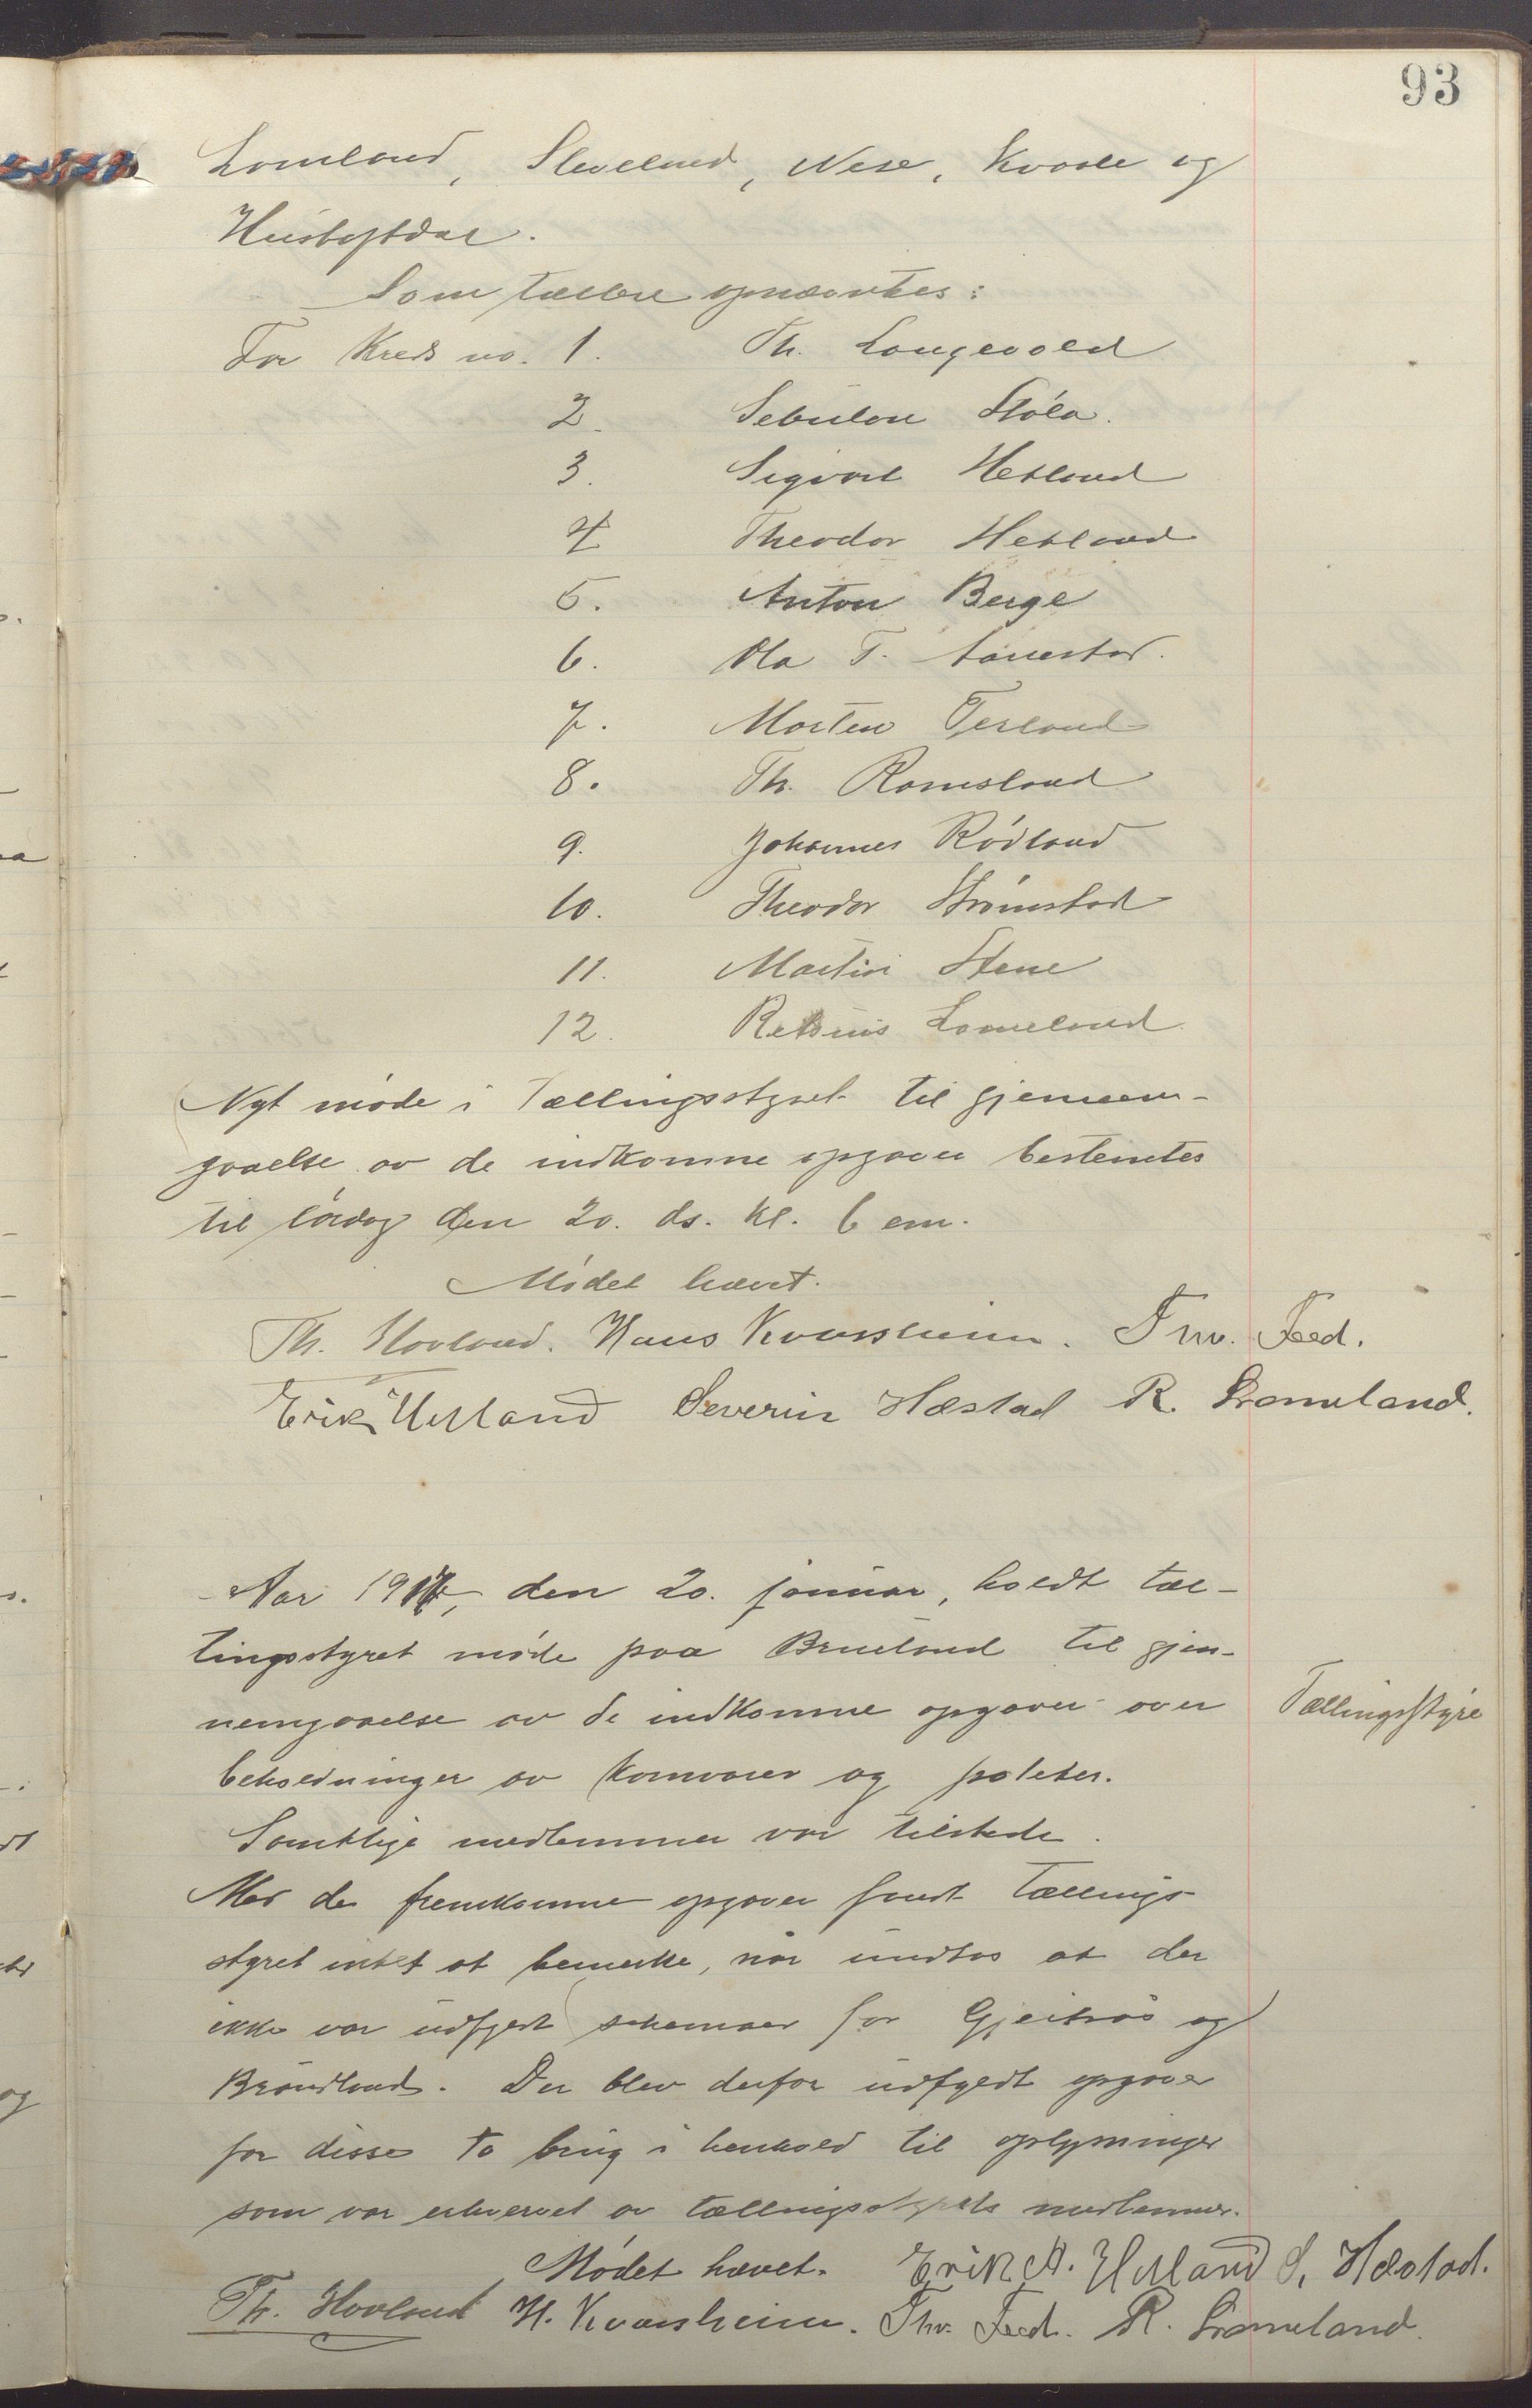 93
Lomeland, Sleveland, Nese, Kvaale og
Hustoftdal.
Som tællere opnævntes:
For Kreds no. 1. Th. Langevold
2. Sebulon Støla.
3. Sigvart Hetland
4 Theodor Hetland
5. Anton Berge
6. Ola T. Aanestad.
7. Morten Terland
8. Th. Ramsland
9. Johannes Rødland
10. Theodor Strømstad
11. Martin Stene
12. Retsius Lomeland.
Nyt møde i Tællingsstyret til gjennem-
gaaelse av de indkomne opgaver bestemtes
til lørdag den 20. ds. kl. 6 em.
Mødet hævet.
Th. Hovland. Hans Kvassheim. Thv. Feed.
Erik Hetland Severin Hæstad R. Lomeland.
Aar 1917, den 20. januar, holdt tæl-
lingsstyret møde paa Brueland til gjen-
nemgaaelse av de indkomne opgaver over
Tællingsstyre
beholdninger av kornvarer og poteter.
Samtlige medlemmer var tilstede.
Mod de fremkomne opgaver fandt Tællings-
styret intet at bemerke, når undtas at der
ikke var udfyldt schemaer for Gjeitrås og
Brøndland. Der blev derfor udfyldt opgaver
for disse to brug i henhold til oplysninger
som var erhvervet av tællingsstyrets medlemmer.
Mødet hævet. Erik A. Hetland S. Hæstad.
Th. Hovland H. Kvassheim. Thv. Feed. R. Lomeland.